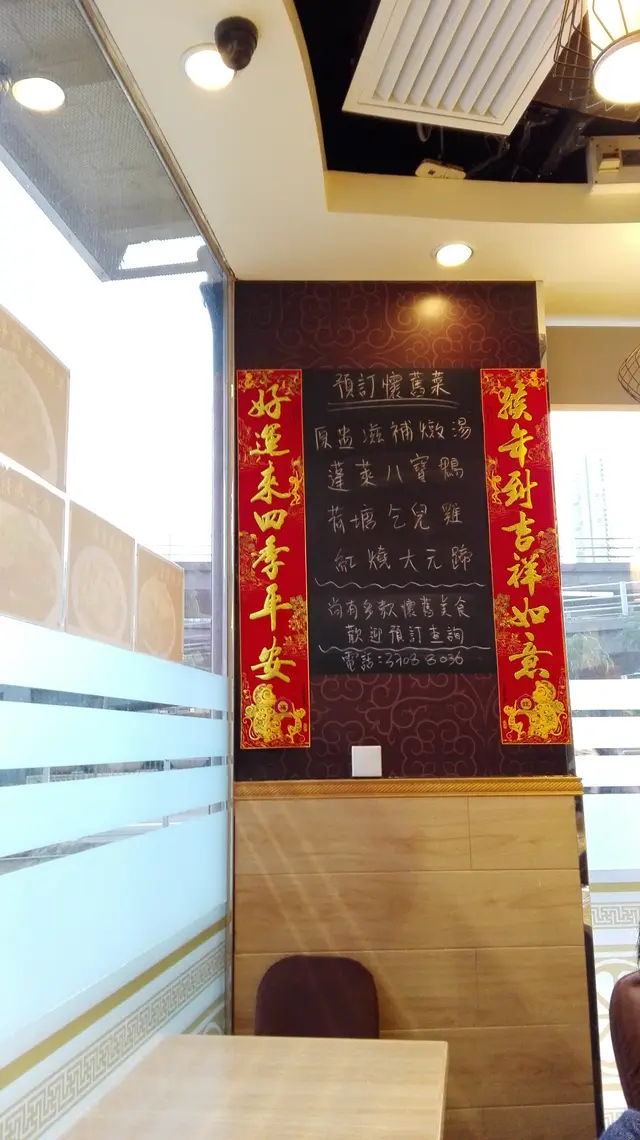 好運來四季平安
預訂懷舊菜
原盅滋補燉湯
蓬萊八寶鴨
荷塘乞兒雞
紅燒大元蹄
尚有多款懷舊美食
歡迎預訂查詢
電話:
猴年到吉祥如意